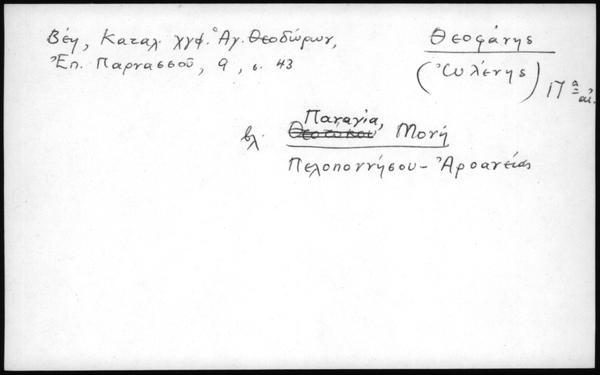 Βέη, Καταλ. χγφ. Ἁγ. Θεοδώρων,
Ἐπ. Παρνασσοῦ, 9, σ. 43
Θεοφάνης
(Ὠλένης)
17 αἰ.
βλ. Παναγία, Μονή
Πελοποννήσου - Ἀροανείας